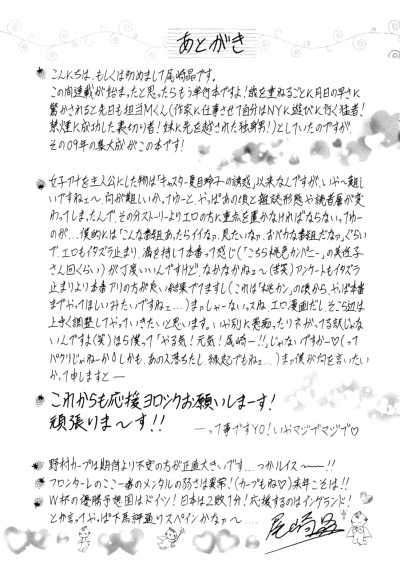 あとがき
こんにちは、もしくは初めまして尾崎晶です。
この間連載が始まったと思ったらもう単行本ですよ！歳を重ねるごとに月日の早さに
驚かされると先日も担当Mくん（作家に仕事させて自分はNYに遊びに行く猛者！
禁煙に成功した裏切り者！妹に先を越された独身男！）としていたのですが、
その09年の集大成がこの本です！
女子アナを主人公にした物は「キャスター夏目玲子の誘惑」以来なんですが、いや〜難し
いですねェ〜、何が難しいか、つーと、やっぱあの頃と雑誌形態や読者層が変
わってしまったんで、その分ストーリーよりエロの方に重点を置かなければならないってゆー
のが…、僕的には「こんな番組あったらイイなァ、見たいなァ、おバカな番組だなァ」ぐらい
で、エロもイタズラ止まり、満を持して本番って感じ（「こちら桃色カンパニー」の美佐子
さん回くらい）が丁度いいんですけど、なかなかねェ〜（苦笑）アンケートもイタズラ
止まりより本番アリの方が良い結果でてますし（これは「桃カン」の頃から、やっぱ本番
までやってほしいみたいですねェ…）まァしゃーないっスね、エロ漫画だし、そこら辺は
上手く調整してやっていきたいと思います。いや別に巻頭、たりネがってる訳じゃな
いんですよ（笑）ほら僕って「やる気！元気！尾崎ー！！」じゃないですかー♡（って
パクリじゃねーか！しかも、あの人落ちたし、縁起でもねェ…）まァ僕が何を言いたい
かって申しますと―
これからも応援ヨロシクお願いしまーす！
頑張りま〜す！！
―って事ですYO！いやマジでマジで♡
野村カープは期待より不安の方が正直大きいです…つかルイス〜〜！！
フロンターレのここ一番のメンタルの弱さは異常！（カープもね♡）来年こそは！！
W杯の優勝予想国はドイツ！日本は2敗1分！応援するのはイングランド！
とか言ってやっぱ下馬評通りスペインかなァ〜…
尾崎晶